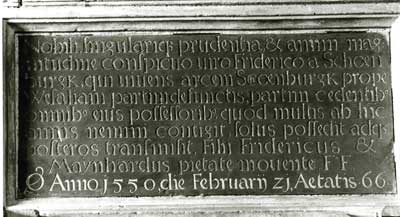 Nobili singulariq; prudentia & animi mag
nitudine conspicuo uiro Friderico a Schoen
burgk, qui uiuens arcem Saxenburgk prope
Vesaliam partim defunctis, partim cedentib
omnib eius possessorib quod multis ab hinc
annis nemini contigit solus possedit ad
posteros transmisit. Filii Fridericus &
Maynhardus pietate mouente F F
O Anno 1550, die Februarij zj, Aetatis 66